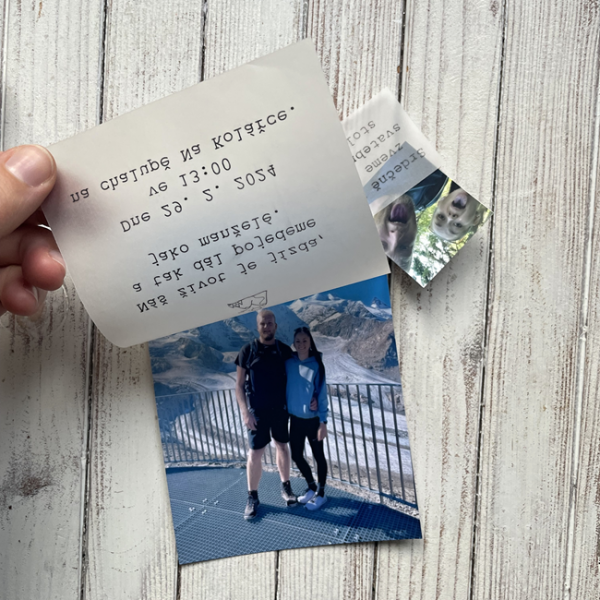 Náš život je jízda,
a tak dál pojedeme
jako manželé.
Dne 29. 2. 2024
ve 13:00
na chalupě Na Kolářce.
Srdečně
zveme